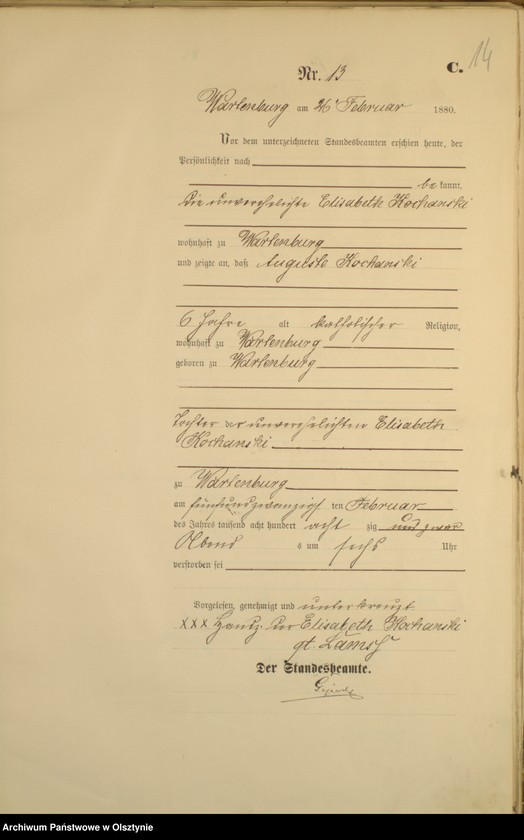 C. 14
Nr. 13
Wartenburg am 26t Februar 1880.
Vor dem unterzeichneten Standesbeamten erschien heute, der
Persönlichkeit nach
be kannt,
die unverehelichte Elisabeth Kochanski
wohnhaft zu Wartenburg
und zeigte an, daß Auguste Kochanski
6 Jahre alt katholischer Religion,
wohnhaft zu Wartenburg
geboren zu Wartenburg
Tochter der unverehelichten Elisabeth
Kochanski
zu Wartenburg
am fünfundzwanzigst ten Februar
des Jahres tausend acht hundert acht zig und zwar
Abend s um sechs Uhr
verstorben sei
Vorgelesen, genehmigt und unterkreuzt
XXX Handz. der Elisabeth Kochanski
Der Standesbeamte.
Archiwum Państwowe w Olsztynie